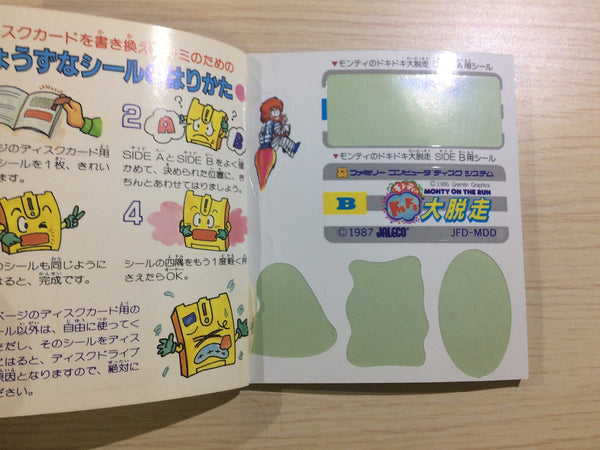 ィスクカードを書き換え
ミのための
ょうずなシール
はりかた
2
A
B
ージのディスクカード用
シールを1枚、きれい
ます。
SIDE AとSIDE Bをよく確
かめて、決められた位置に、き
ちんとあわせてはりましょう。
4
のシールも同じように
はると、完成です。
シールの四隅をもう1度軽く押
さえたらOK。
ページのディスクカード用の
ール以外は、自由に使ってく
ただし、そのシールをディス
にはると、ディスクドライブ
原因となりますので、絶対に
ださい。
▼モンティのドキドキ大脱走
A用シール
▼モンティのドキドキ大脱走 SIDE B用シール
ファミリー コンピュータ ディスク システム
© 1986 Gremlin Graphics
MONTY ON THE RUN
B
モンティの
ドキドキ
大脱走
© 1987 JALECO JFD-MDD